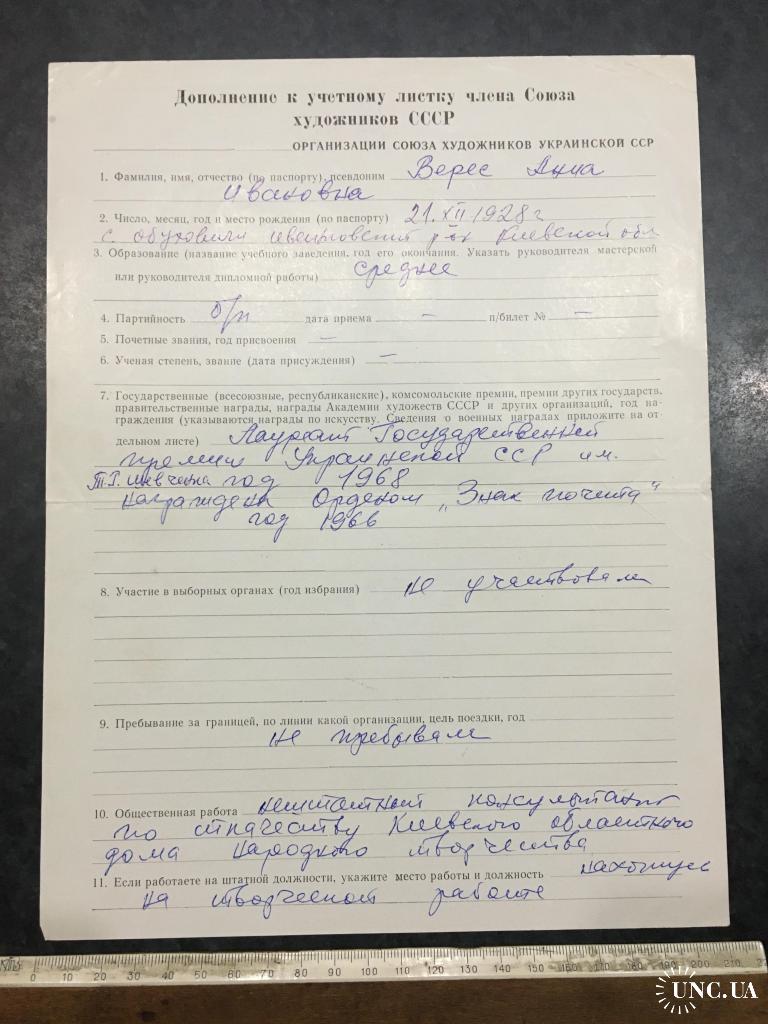 Дополнение к учетному листку члена Союза
художников СССР
ОРГАНИЗАЦИИ СОЮЗА ХУДОЖНИКОВ УКРАИНСКОЙ ССР
1. Фамилия, имя, отчество (по паспорту), псевдоним Верес Анна
Ивановна
2. Число, месяц, год и место рождения (по паспорту) 21.XII 1928 г
с. Обуховичи Иваньковский р-н Киевской обл
3. Образование (название учебного заведения, год его окончания. Указать руководителя мастерской
или руководителя дипломной работы) среднее
4. Партийность б/п дата приема — п/билет № —
5. Почетные звания, год присвоения —
6. Ученая степень, звание (дата присуждения) —
7. Государственные (всесоюзные, республиканские), комсомольские премии, премии других государств,
правительственные награды, награды Академии художеств СССР и других организаций, год на-
граждения (указываются награды по искусству. Сведения о военных наградах приложите на от-
дельном листе) Лауреат Государственной
премии Украинской ССР им.
Т.Г. Шевченка год 1968
награждена Орденом „Знак почета"
год 1966
8. Участие в выборных органах (год избрания) не участвовала
9. Пребывание за границей, по линии какой организации, цель поездки, год
не пребывала
10. Общественная работа нештатный консультант
по ткачеству Киевского областного
дома народного творчества
11. Если работаете на штатной должности, укажите место работы и должность нахожусь
на творческой работе
0 10 20 30 40 50 60 70 80 90 100 110 120 130 140 150 160 170 180 190 200 210
UNC.UA